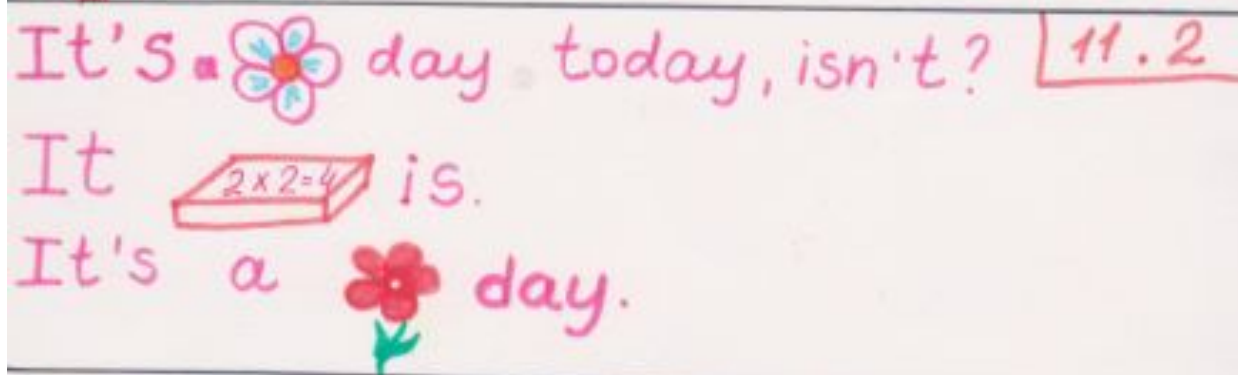 It's a day today, isn't? 11.2
It 2 x 2=4 is.
It's a day.